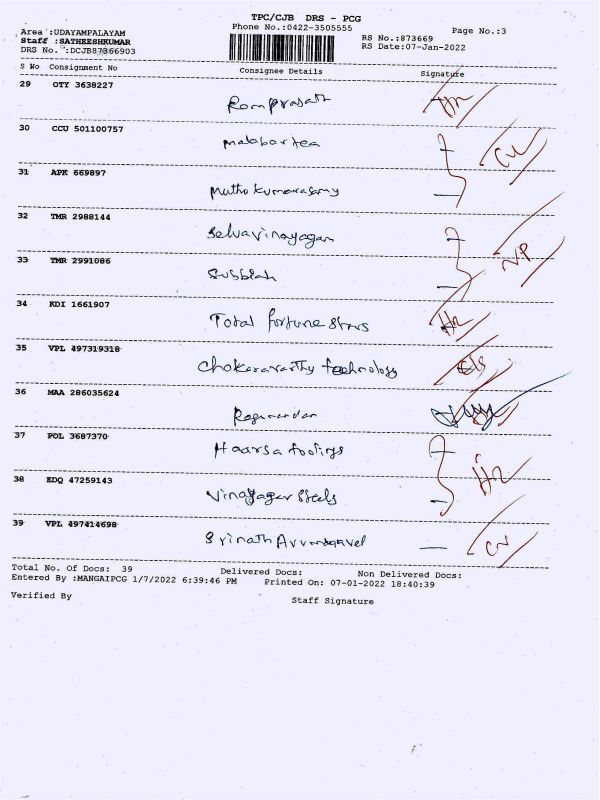 TPC/CJB DRS - PCG
Area :UDAYAMPALAYAM Phone No.:0422-3505555 Page No.:3
Staff :SATHEESHKUMAR RS No.:873669
DRS No. :DCJB87366903 RS Date:07-Jan-2022
S No Consignment No Consignee Details Signature
29 OTY 3638227
Ramprasath
30 CCU 501100757
malabar tea
31 APK 669897
Muthu kumarasamy
32 TMR 2988144
Selvavinayagam
33 TMR 2991086
Subbiah
34 KDI 1661907
Total fortune stars
35 VPL 497319318
Chakaravarthy technology
36 MAA 286035624
Ragunandan
37 POL 3687370
Haarsa toolings
38 EDQ 47259143
Vinayagar Steels
39 VPL 497414698
Srinath
Total No. Of Docs: 39 Delivered Docs: Non Delivered Docs:
Entered By :MANGAIPCG 1/7/2022 6:39:46 PM Printed On: 07-01-2022 18:40:39
Verified By Staff Signature